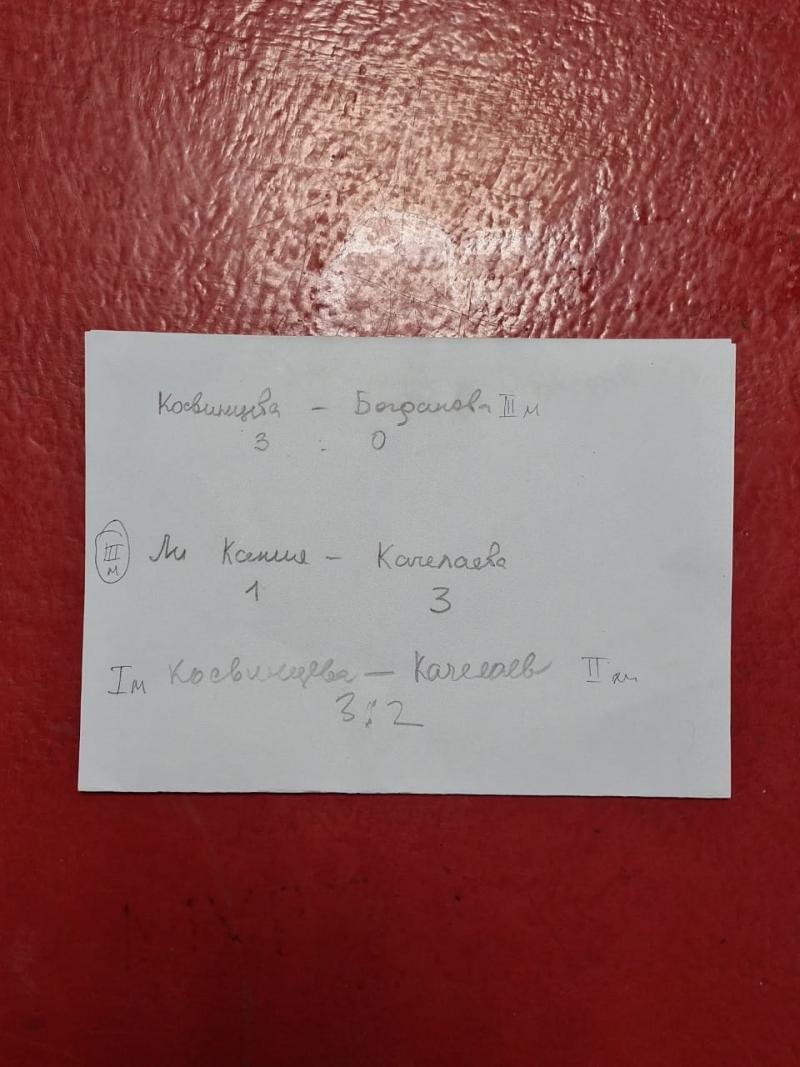 Косвинцева - Богданова III м
3 : 0
III м Ли Ксения - Качелаева
1 3
I м Косвинцева - Качелаев II м
3 : 2